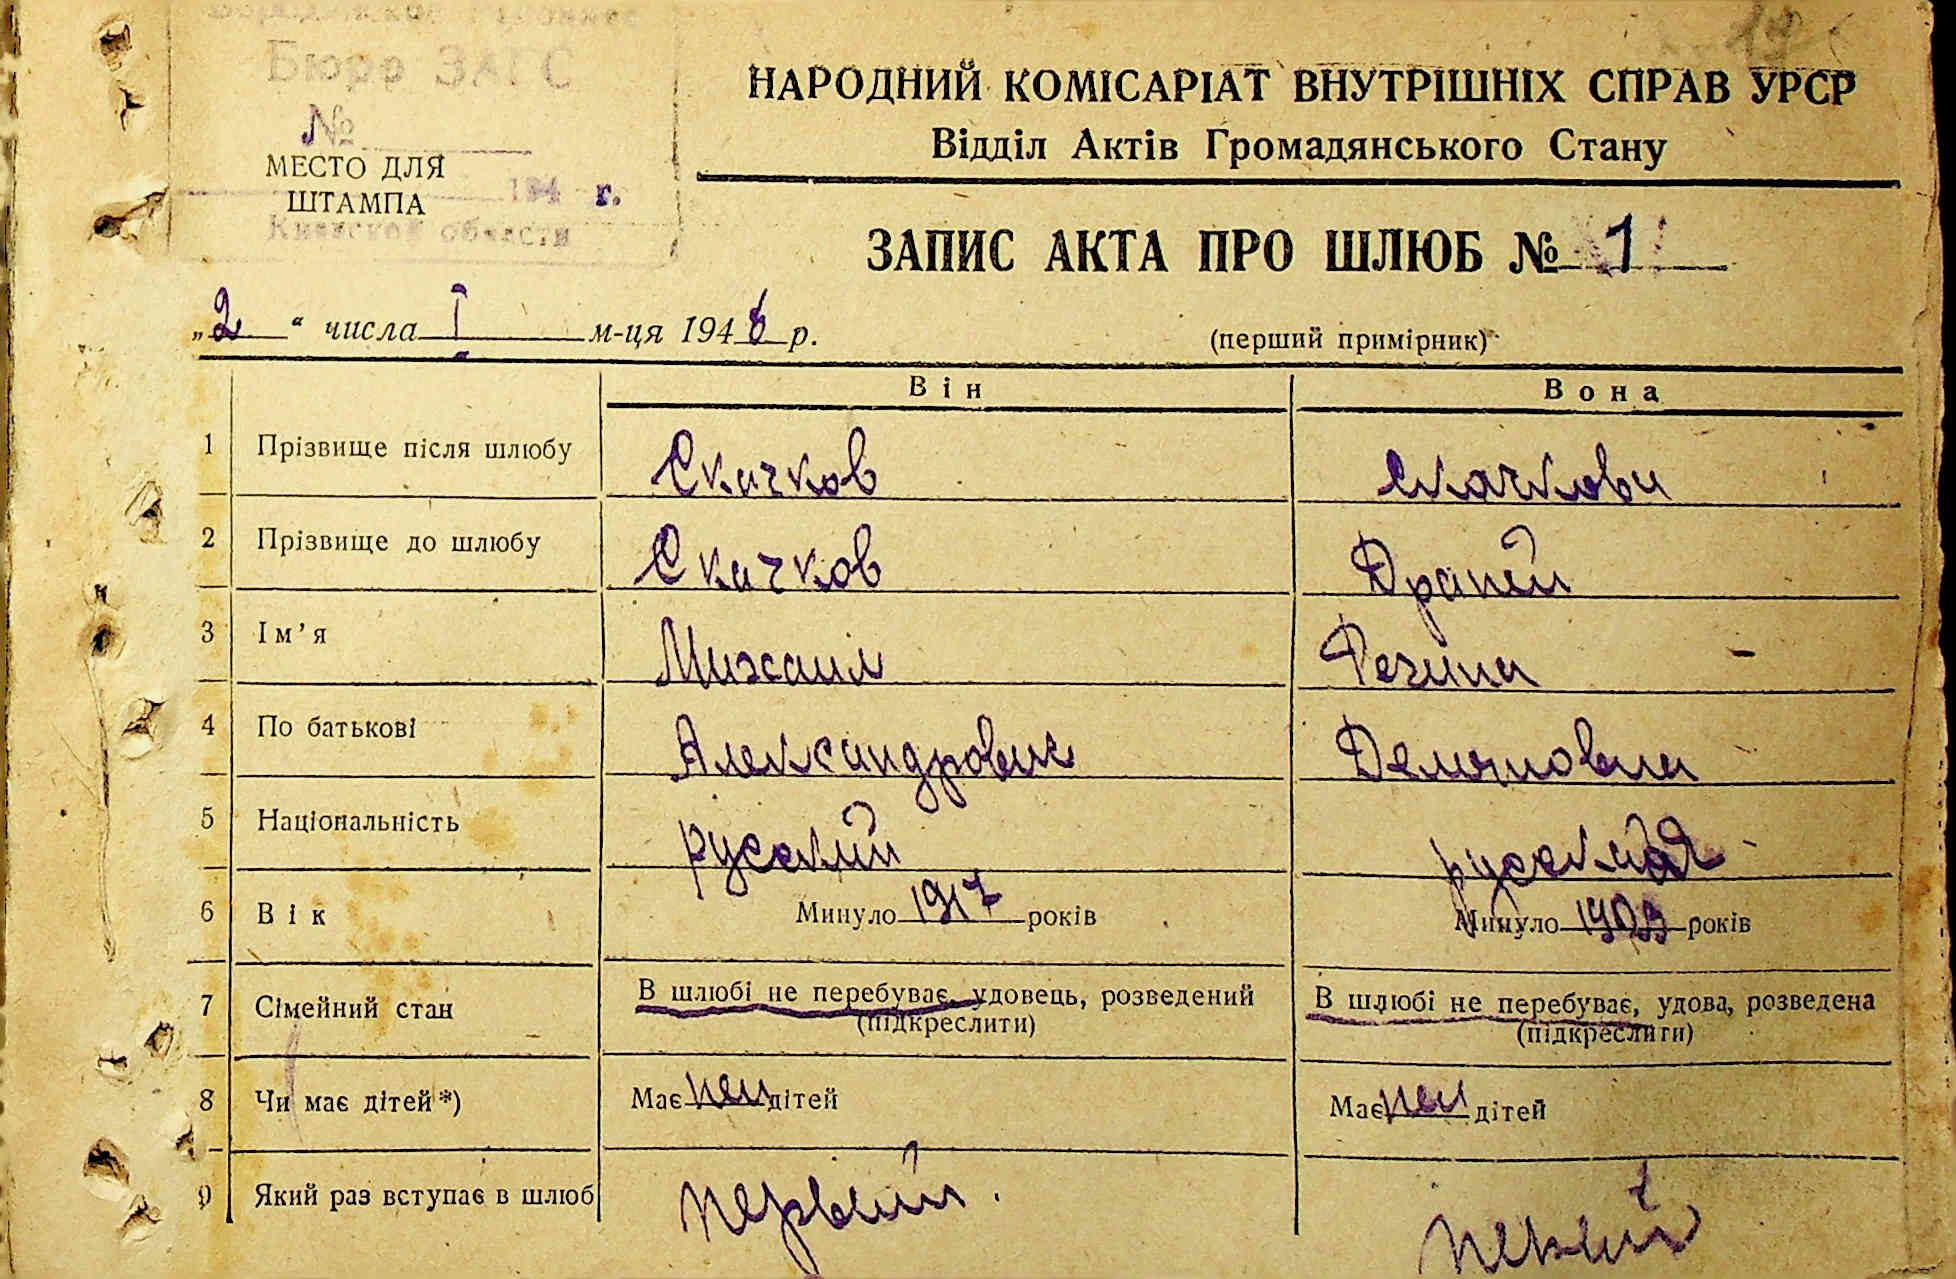 Бюро ЗАГС
№
МЕСТО ДЛЯ
ШТАМПА
194 г.
Киевской области
НАРОДНИЙ КОМІСАРІАТ ВНУТРІШНІХ СПРАВ УРСР
Відділ Актів Громадянського Стану
ЗАПИС АКТА ПРО ШЛЮБ № 1
„2“ числа I м-ця 1948 р.
(перший примірник)
Він Вона
1 Прізвище після шлюбу Скачков Скачкова
2 Прізвище до шлюбу Скачков Драпей
3 Ім’я Михаил
4 По батькові Александрович
5 Національність русский русская
6 Вік Минуло 1917 років Минуло років
7 Сімейний стан В шлюбі не перебуває, удовець, розведений В шлюбі не перебуває, удова, розведена
(підкреслити) (підкреслити)
8 Чи має дітей*) Має нет дітей Має нет дітей
9 Який раз вступає в шлюб первый первый